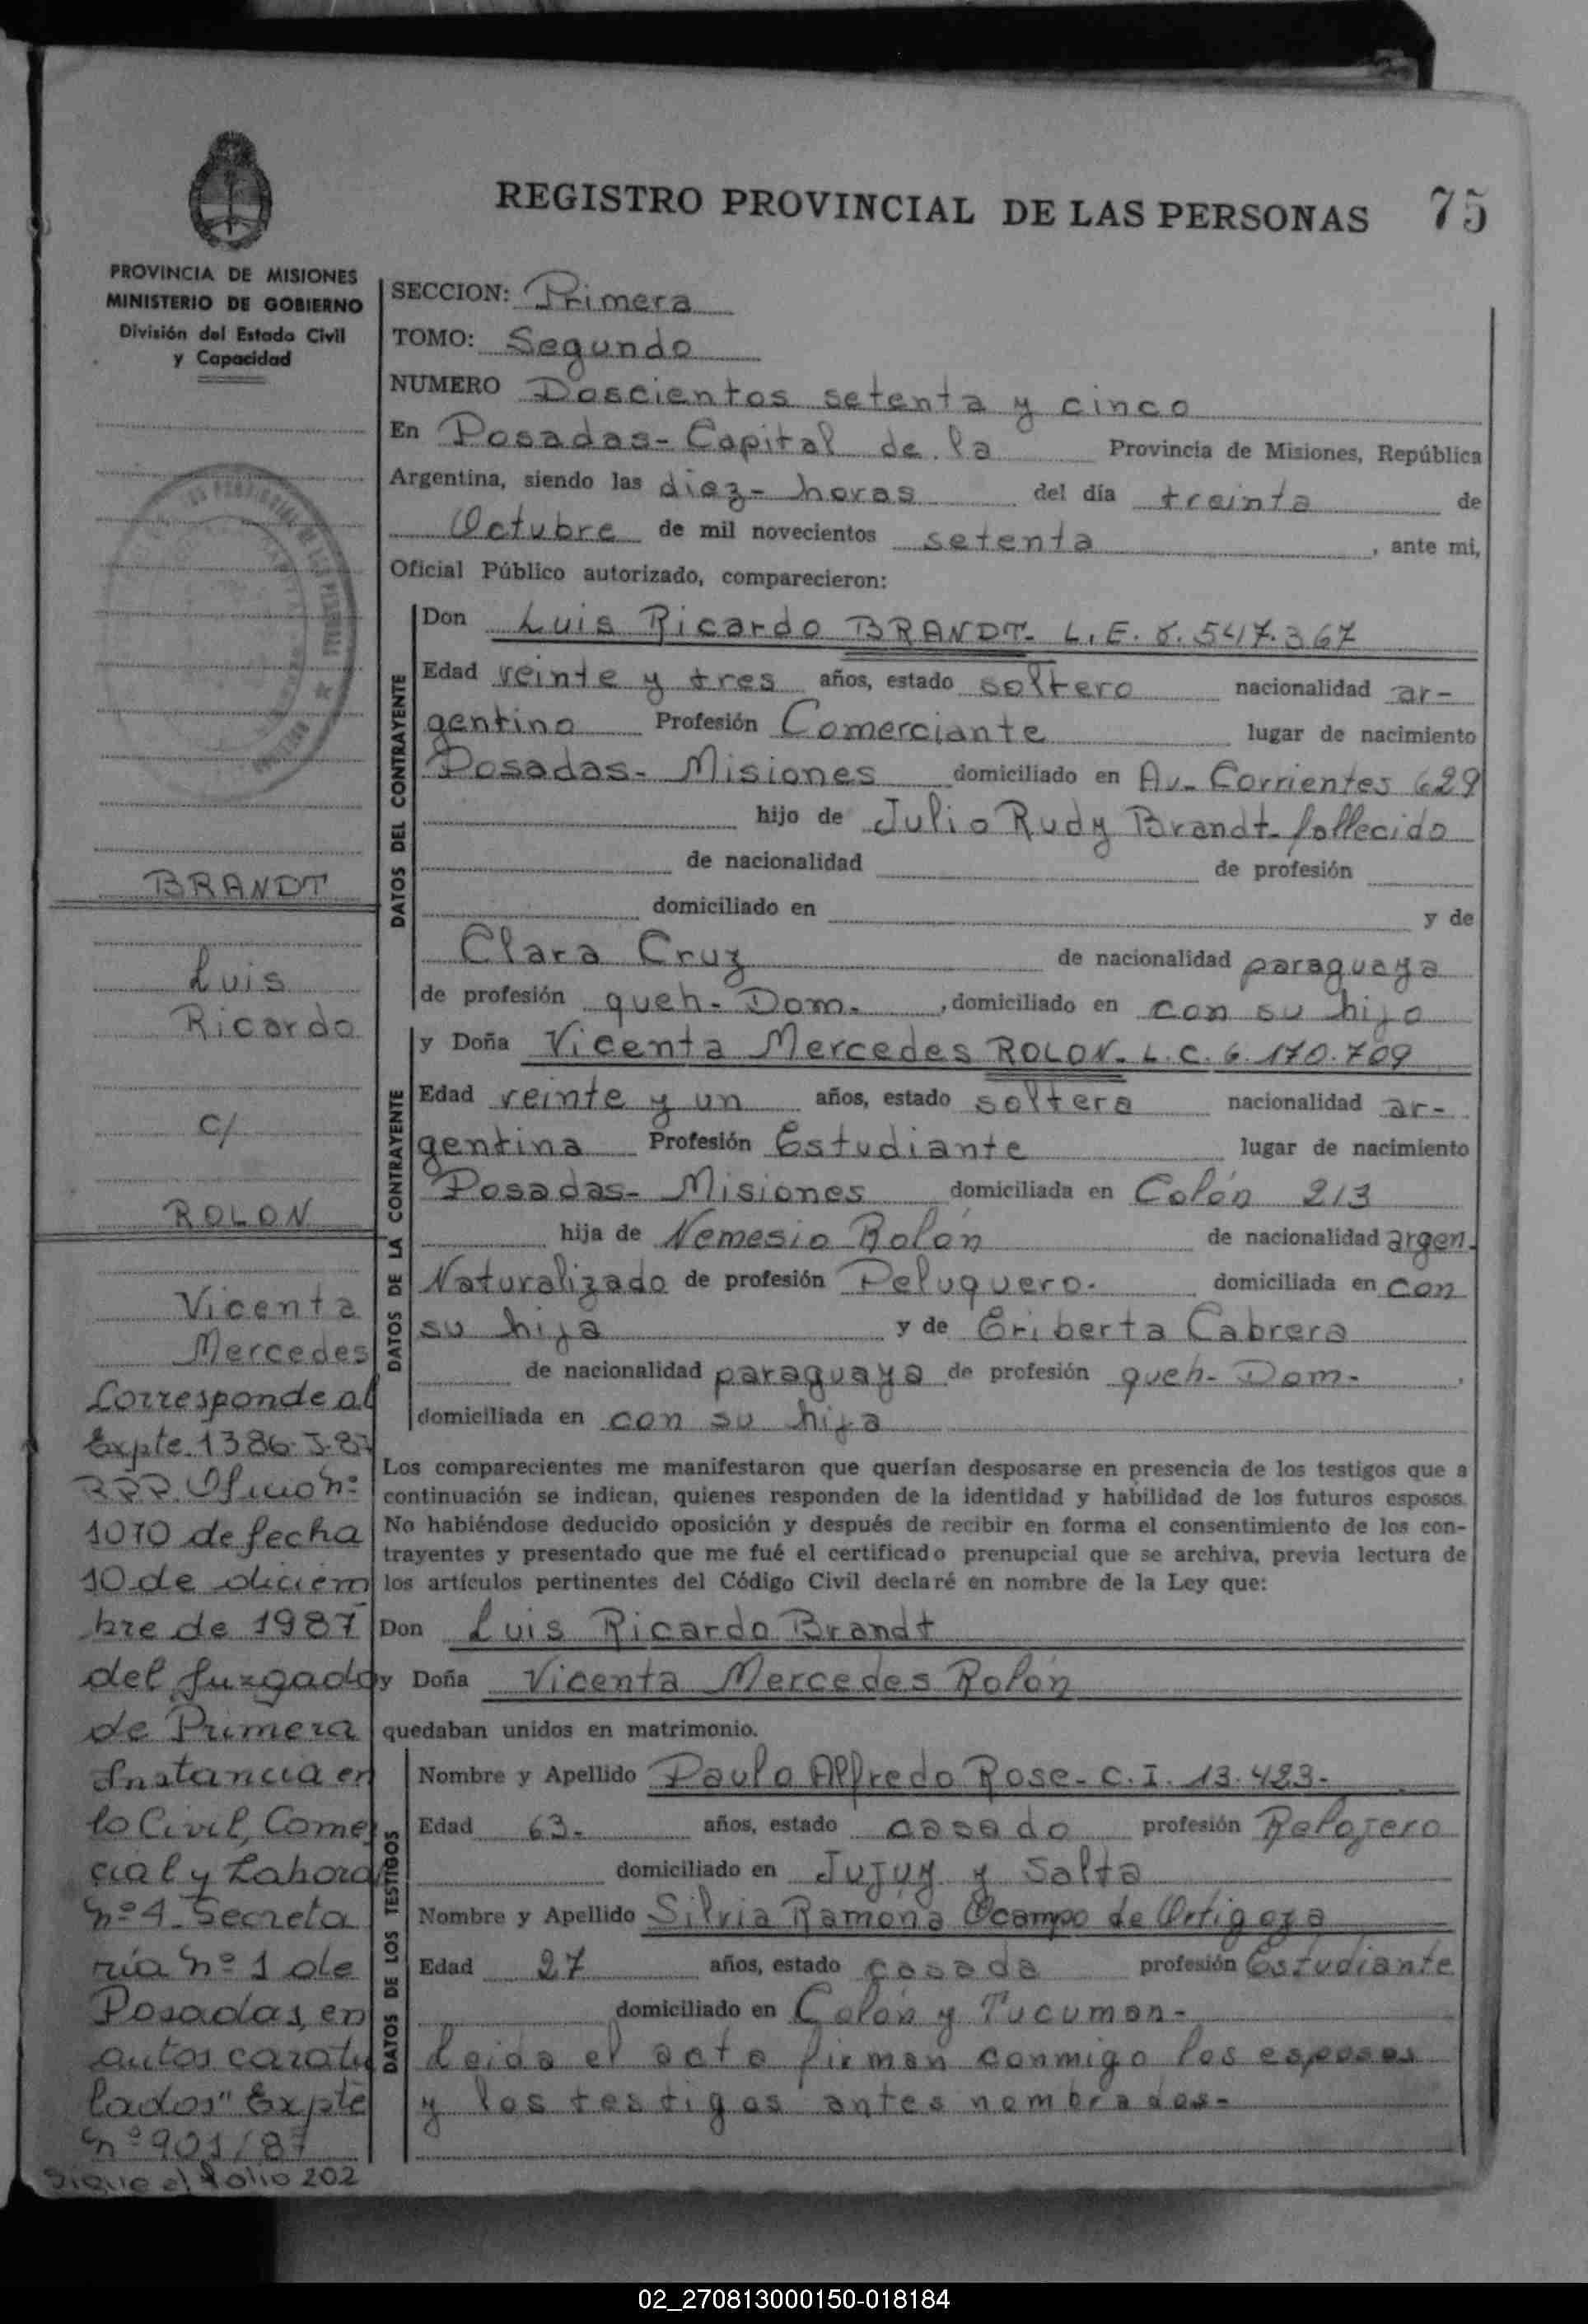 REGISTRO PROVINCIAL DE LAS PERSONAS 75
PROVINCIA DE MISIONES
MINISTERIO DE GOBIERNO
División del Estado Civil
y Capacidad
BRANDT
Luis
Ricardo
c/
ROLON
Vicenta
Mercedes
Corresponde al
Expte. 1386-J-87
Oficio nº
1070 de fecha
10 de diciem
bre de 1987
del Juzgado
de Primera
Instancia en
lo Civil, Comer
cial y Labora
nº 4 Secreta
ría nº 1 de
Posadas, en
autos caratu
lados" Expte
nº 901/87
Sigue el folio 202
SECCION: Primera
TOMO: Segundo
NUMERO Doscientos setenta y cinco
En Posadas- Capital de la Provincia de Misiones, República
Argentina, siendo las diez- horas del día treinta de
Octubre de mil novecientos setenta, ante mi,
Oficial Público autorizado, comparecieron:
DATOS DEL CONTRAYENTE
Don Luis Ricardo BRANDT- L.E. 8.547.367
Edad veinte y tres años, estado soltero nacionalidad ar-
gentino Profesión Comerciante lugar de nacimiento
Posadas- Misiones domiciliado en Av- Corrientes 629
hijo de Julio Rudy Brandt- fallecido
de nacionalidad de profesión
domiciliado en y de
Clara Cruz de nacionalidad paraguaya
de profesión queh- Dom-, domiciliado en con su hijo
DATOS DE LA CONTRAYENTE
y Doña Vicenta Mercedes ROLON- L.C. 6.170.709
Edad veinte y un años, estado soltera nacionalidad ar-
gentina Profesión Estudiante lugar de nacimiento
Posadas- Misiones domiciliada en Colón 213
hija de Nemesio Rolón de nacionalidad argen.
Naturalizado de profesión Peluquero- domiciliada en con
su hija y de Eriberta Cabrera
de nacionalidad paraguaya de profesión queh- Dom-,
domiciliada en con su hija
Los comparecientes me manifestaron que querían desposarse en presencia de los testigos que a
continuación se indican, quienes responden de la identidad y habilidad de los futuros esposos.
No habiéndose deducido oposición y después de recibir en forma el consentimiento de los con-
trayentes y presentado que me fué el certificado prenupcial que se archiva, previa lectura de
los artículos pertinentes del Código Civil declaré en nombre de la Ley que:
Don Luis Ricardo Brandt
y Doña Vicenta Mercedes Rolón
quedaban unidos en matrimonio.
DATOS DE LOS TESTIGOS
Nombre y Apellido Paulo Alfredo Rose- C.I. 13.423-
Edad 63- años, estado casado profesión Relojero
domiciliado en Jujuy y Salta
Nombre y Apellido Silvia Ramona Ocampo de Ortigoza
Edad 27 años, estado casada profesión Estudiante
domiciliado en Colón y Tucuman-
Leida el acta firman conmigo los esposos
y los testigos antes nombrados-
02_270813000150-018184